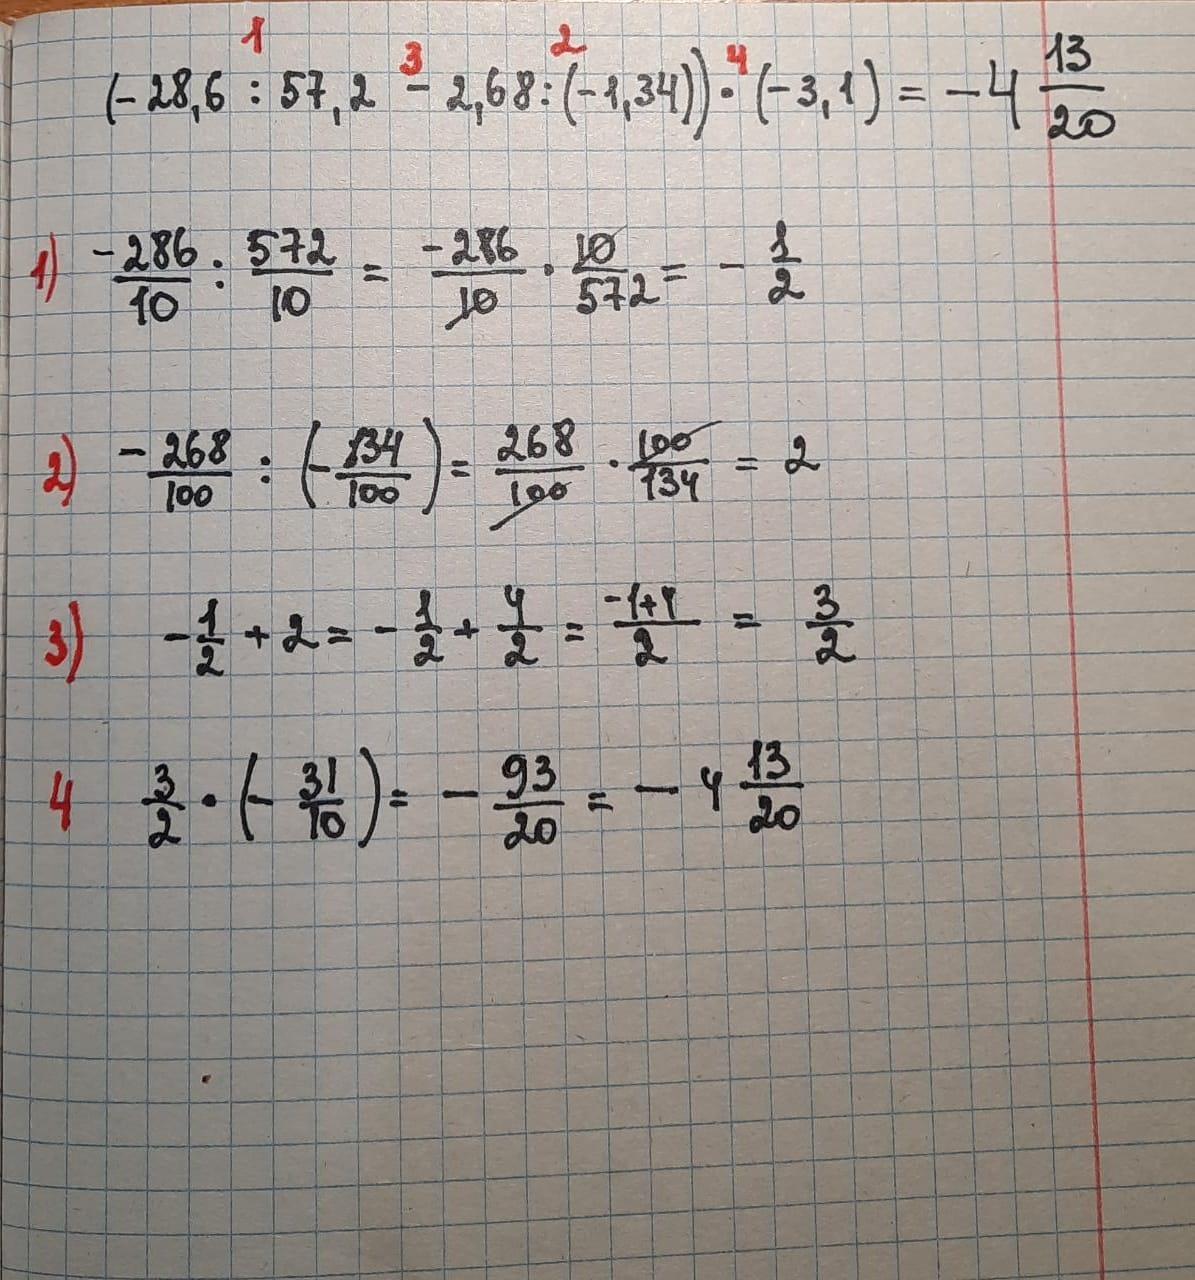 1 3 2 4
(-28,6 : 57,2 - 2,68 : (-1,34)) · (-3,1) = -4 13/20
1) -286/10 : 572/10 = -286/10 · 10/572 = -1/2
2) -268/100 : (-134/100) = 268/100 · 100/134 = 2
3) -1/2 + 2 = -1/2 + 4/2 = -1+4/2 = 3/2
4 3/2 · (-31/10) = -93/20 = -4 13/20